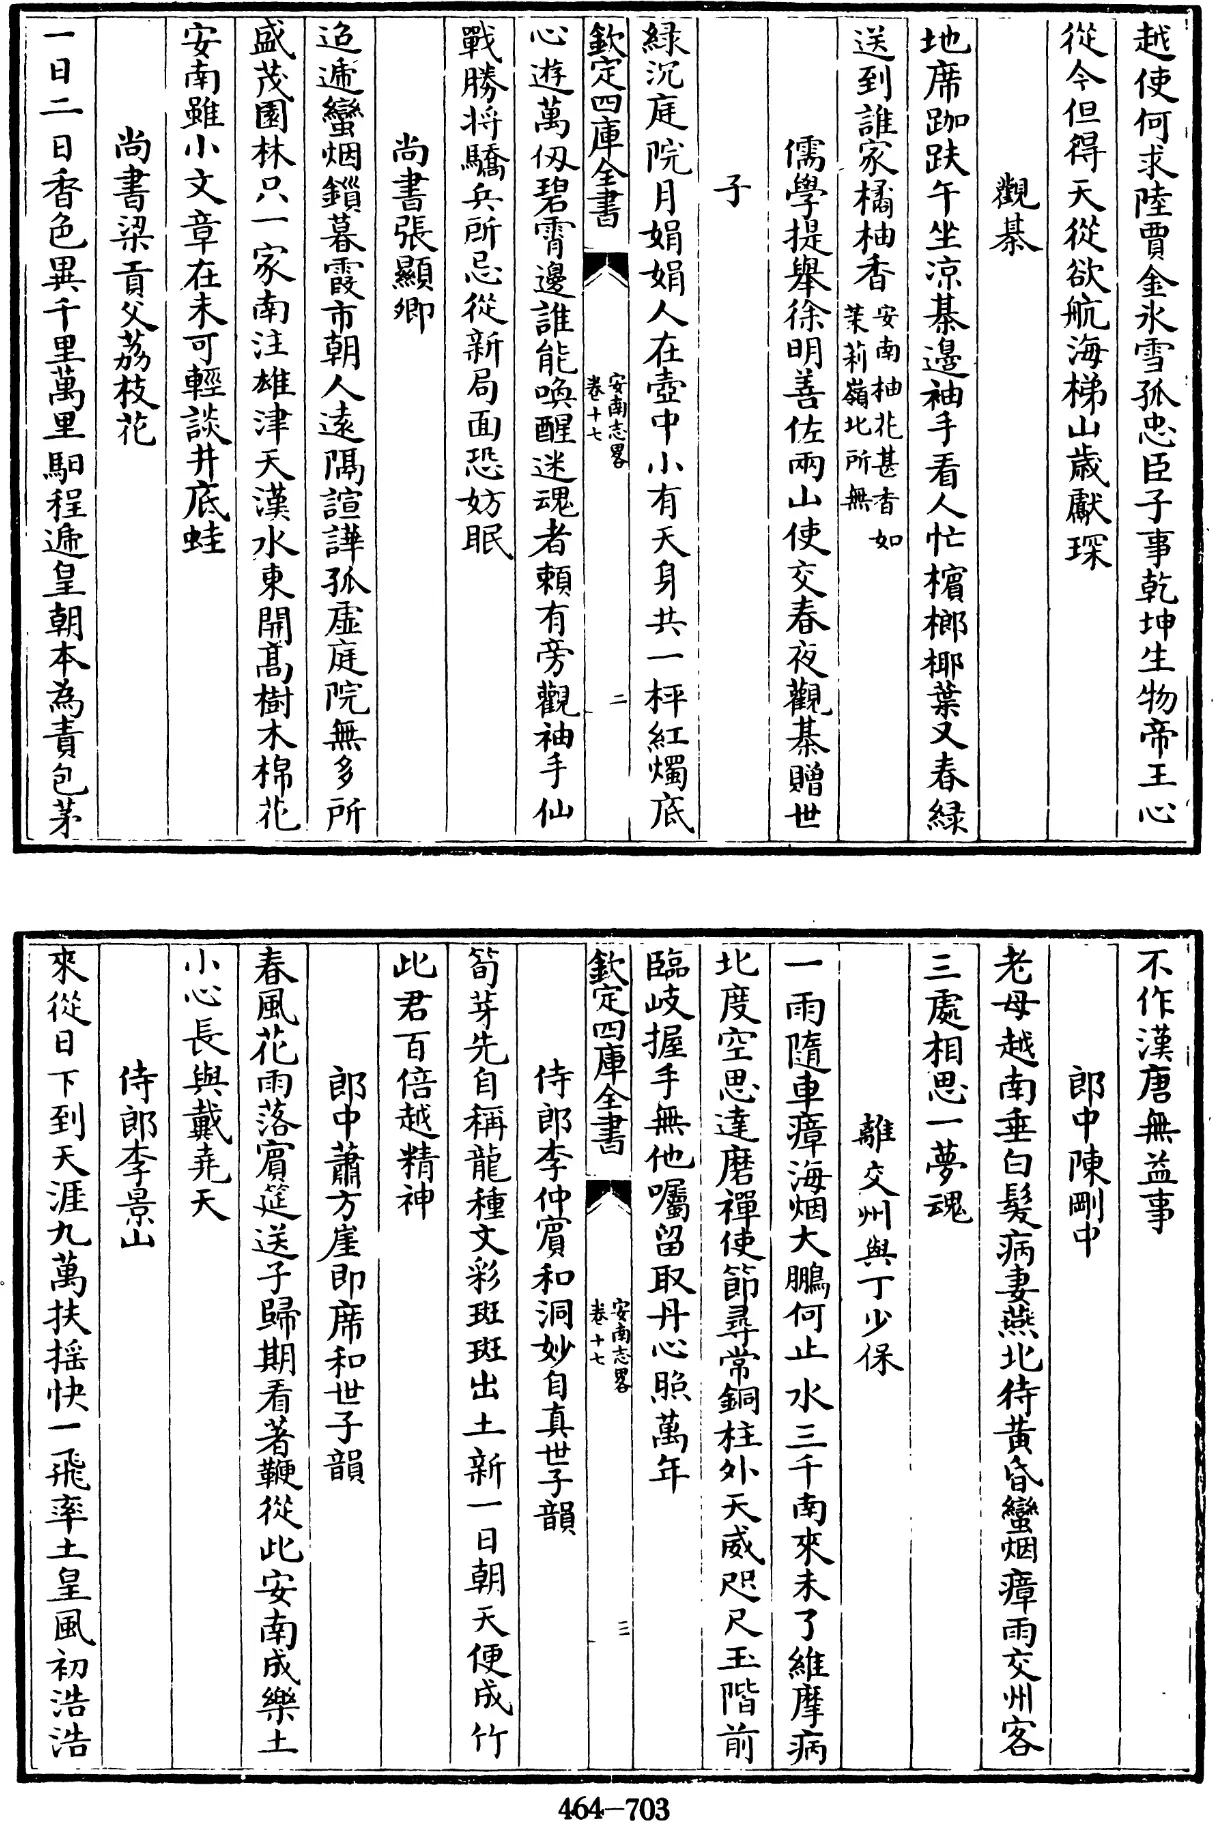 越使何求陸賈金氷雪孤忠臣子事乾坤生物帝王心
從今但得天從欲航海梯山歲獻琛
觀棊
地席跏趺午坐凉棊邊袖手看人忙檳榔椰葉又春緑
送到誰家橘柚香安南柚花甚香如茉莉嶺北所無
儒學提舉徐明善佐兩山使交春夜觀棊贈世
子
緑沉庭院月娟娟人在壺中小有天身共一枰紅燭底
欽定四庫全書
安南志畧
卷十七
二
心遊萬仭碧霄邊誰能喚醒迷魂者頼有旁觀袖手仙
戰勝將驕兵所忌從新局面恐妨眠
尚書張顯卿
迢遞蠻烟鎻暮霞市朝人逺隔諠譁孤虛庭院無多所
盛茂園林只一家南注雄津天漢水東開髙樹木棉花
安南雖小文章在未可輕談井底蛙
尚書梁貢父荔枝花
一日二日香色異千里萬里馹程遞皇朝本為責包茅
不作漢唐無益事
郎中陳剛中
老母越南垂白髮病妻燕北待黃昏蠻烟瘴雨交州客
三處相思一夢魂
離交州與丁少保
一雨隨車瘴海烟大鵬何止水三千南來未了維摩病
北度空思達磨禪使節尋常銅柱外天威咫尺玉階前
臨岐握手無他囑留取丹心照萬年
欽定四庫全書
安南志畧
卷十七
三
侍郎李仲賔和洞妙自真世子韻
筍芽先自稱龍種文彩斑斑出土新一日朝天便成竹
此君百倍越精神
郎中蕭方崖即席和世子韻
春風花雨落賔筵送子歸期看著鞭從此安南成樂土
小心長與戴堯天
侍郎李景山
來從日下到天涯九萬扶摇快一飛率土皇風初浩浩
464-703